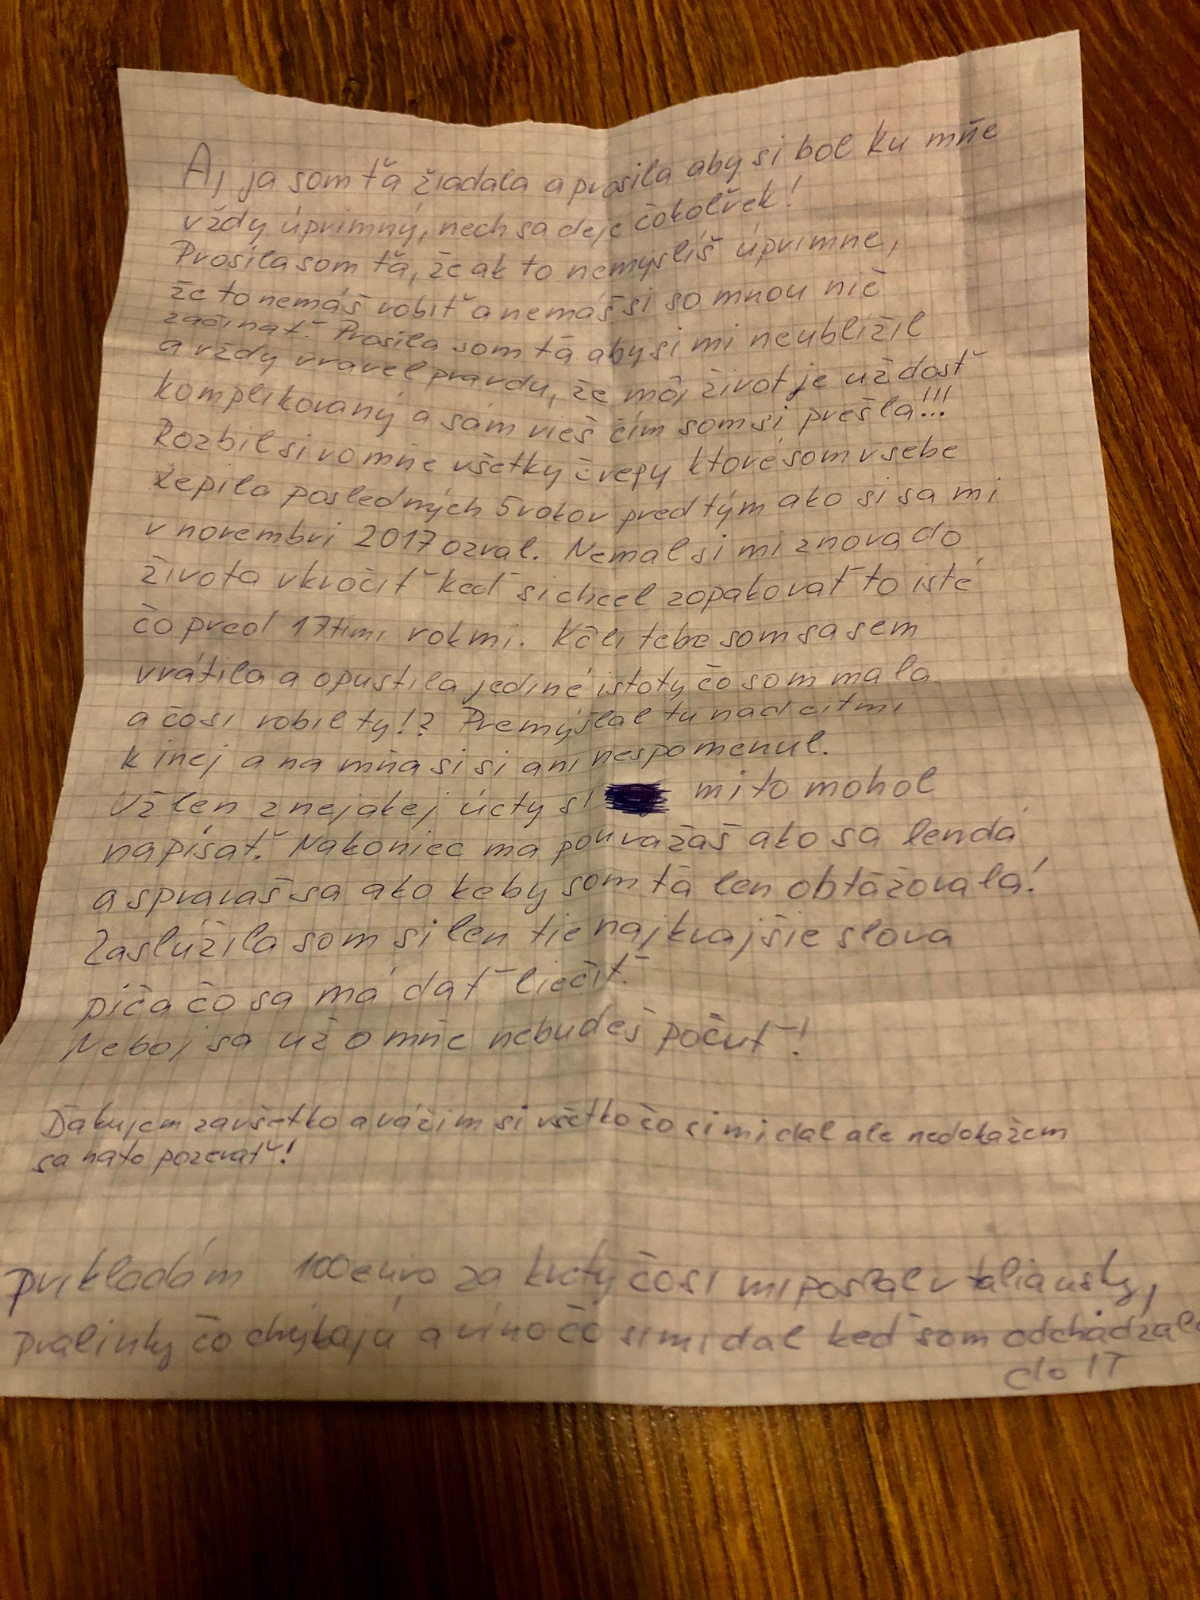 Aj ja som ťa žiadala a prosila aby si bol ku mňe
vždy úprimný, nech sa deje čokoľvek!
Prosila som ťa, že ak to nemyslíš úprimne,
že to nemáš robiť a nemáš si so mnou nič
začínať. Prosila som ťa aby si mi neublížil
a vždy vravel pravdu, že môj život je už dosť
komplikovaný a sám vieš čím som si prešla!!!
Rozbil si vo mňe všetky črepy ktoré som v sebe
lepila posledných 5 rokov predtým ako si sa mi
v novembri 2017 ozval. Nemal si mi znova do
života vkročiť keď si chcel zopakovať to isté
čo pred 17timi rokmi. Kôli tebe som sa sem
vrátila a opustila jediné istoty čo som mala
a čo si robil ty!? Premýšlal tu nad citmi
k inej a na mňa si si ani nespomenul.
Už len z nejakej úcty si mi to mohol
napísať. Nakoniec ma považaš ako sa lendá
a spravaš sa ako keby som ťa len obťažovala!
Zaslúžila som si len tie najkrajšie slova
piča čo sa má dať liečiť.
Neboj sa už o mňe nebudeš počuť!
Ďakujem za všetko a vážim si všetko čo si mi dal ale nedokážem
sa na to pozerať!
prikladám 100 euro za kvety čo si mi poslal v taliansky,
pralinky čo chýbajú a víno čo si mi dal keď som odchádzala
do IT